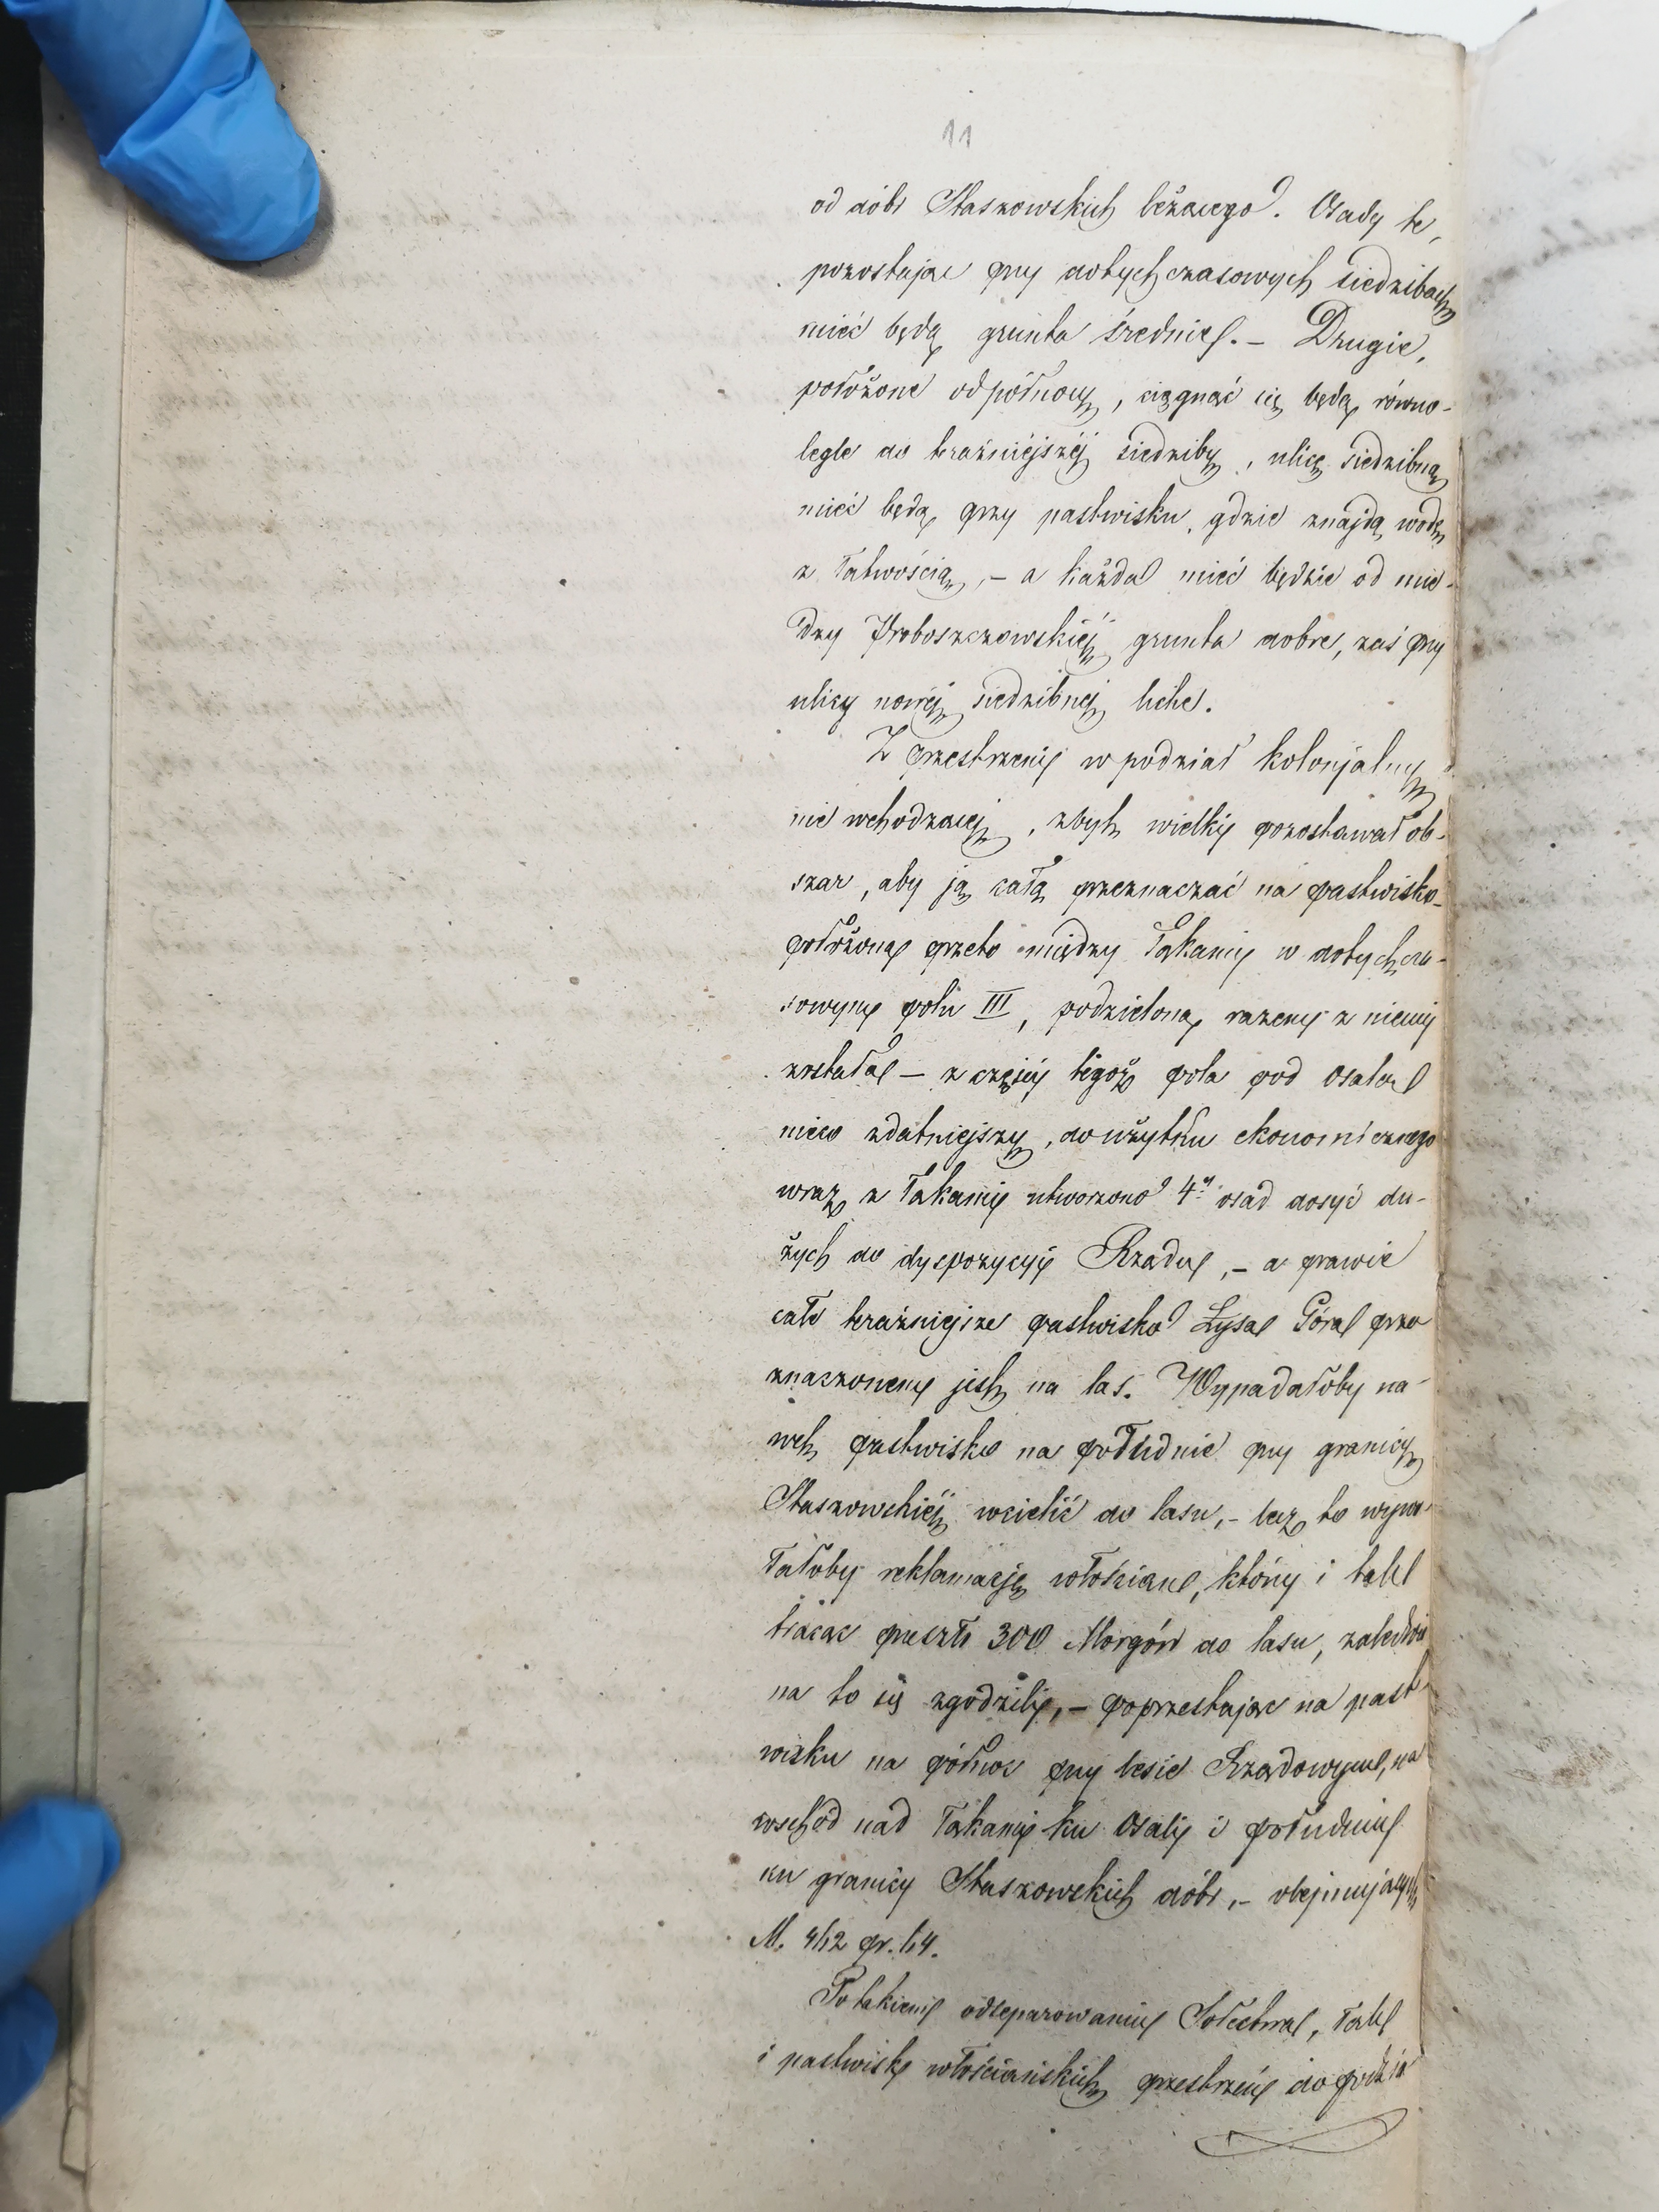 11
od dóbr Staszowskich leżącego. Osady te,
pozostając przy dotychczasowych siedzibach
mieć będą grunta średnie. – Drugie,
położone od północy, ciągnąć się będą równo-
legle do teraźniejszéj siedziby, ulicę siedzibną
mieć będą przy pastwisku, gdzie znajdą wodę
z łatwością, – a każda mieć będzie od mie-
dzy Proboszczowskiéj grunta dobre, zaś przy
ulicy nowéj siedzibnéj liche.
Z przestrzeni w podział kolonjalny
nie wchodzącéj, zbyt wielki pozostawał ob-
szar, aby ją całą przeznaczać na pastwisko –
położona przeto między Łąkami w dotychcza-
sowym polu III, podzieloną razem z niemi
została – z części tegoż pola pod Osalą
nieco zdatniejszy, do użytku ekonomicznego
wraz z Łąkami utworzono 4y osad dosyć du-
żych do dyspozycyi Rządu, – a prawie
całe teraźniejsze pastwisko Łysa Góra prze
znaczonem jest na las. Wypadałoby na-
wet pastwisko na południe przy granicy
Staszowskiéj wcielić do lasu, – lecz to wywo-
łałoby reklamację włościan, którzy i tak
tracąc przeszło 300 Morgów do lasu, zaledwie
na to się zgodzili, – poprzestając na past-
wisku na północ przy lesie Rządowym, na
wschód nad Łąkami ku Osali i południu
ku granicy Staszowskich dóbr, – obejmujących
M. 412 pr. 64.
Po takiem odseparowaniu Sołectwa, Łąk
i pastwisk włościańskich przestrzeń do podzia